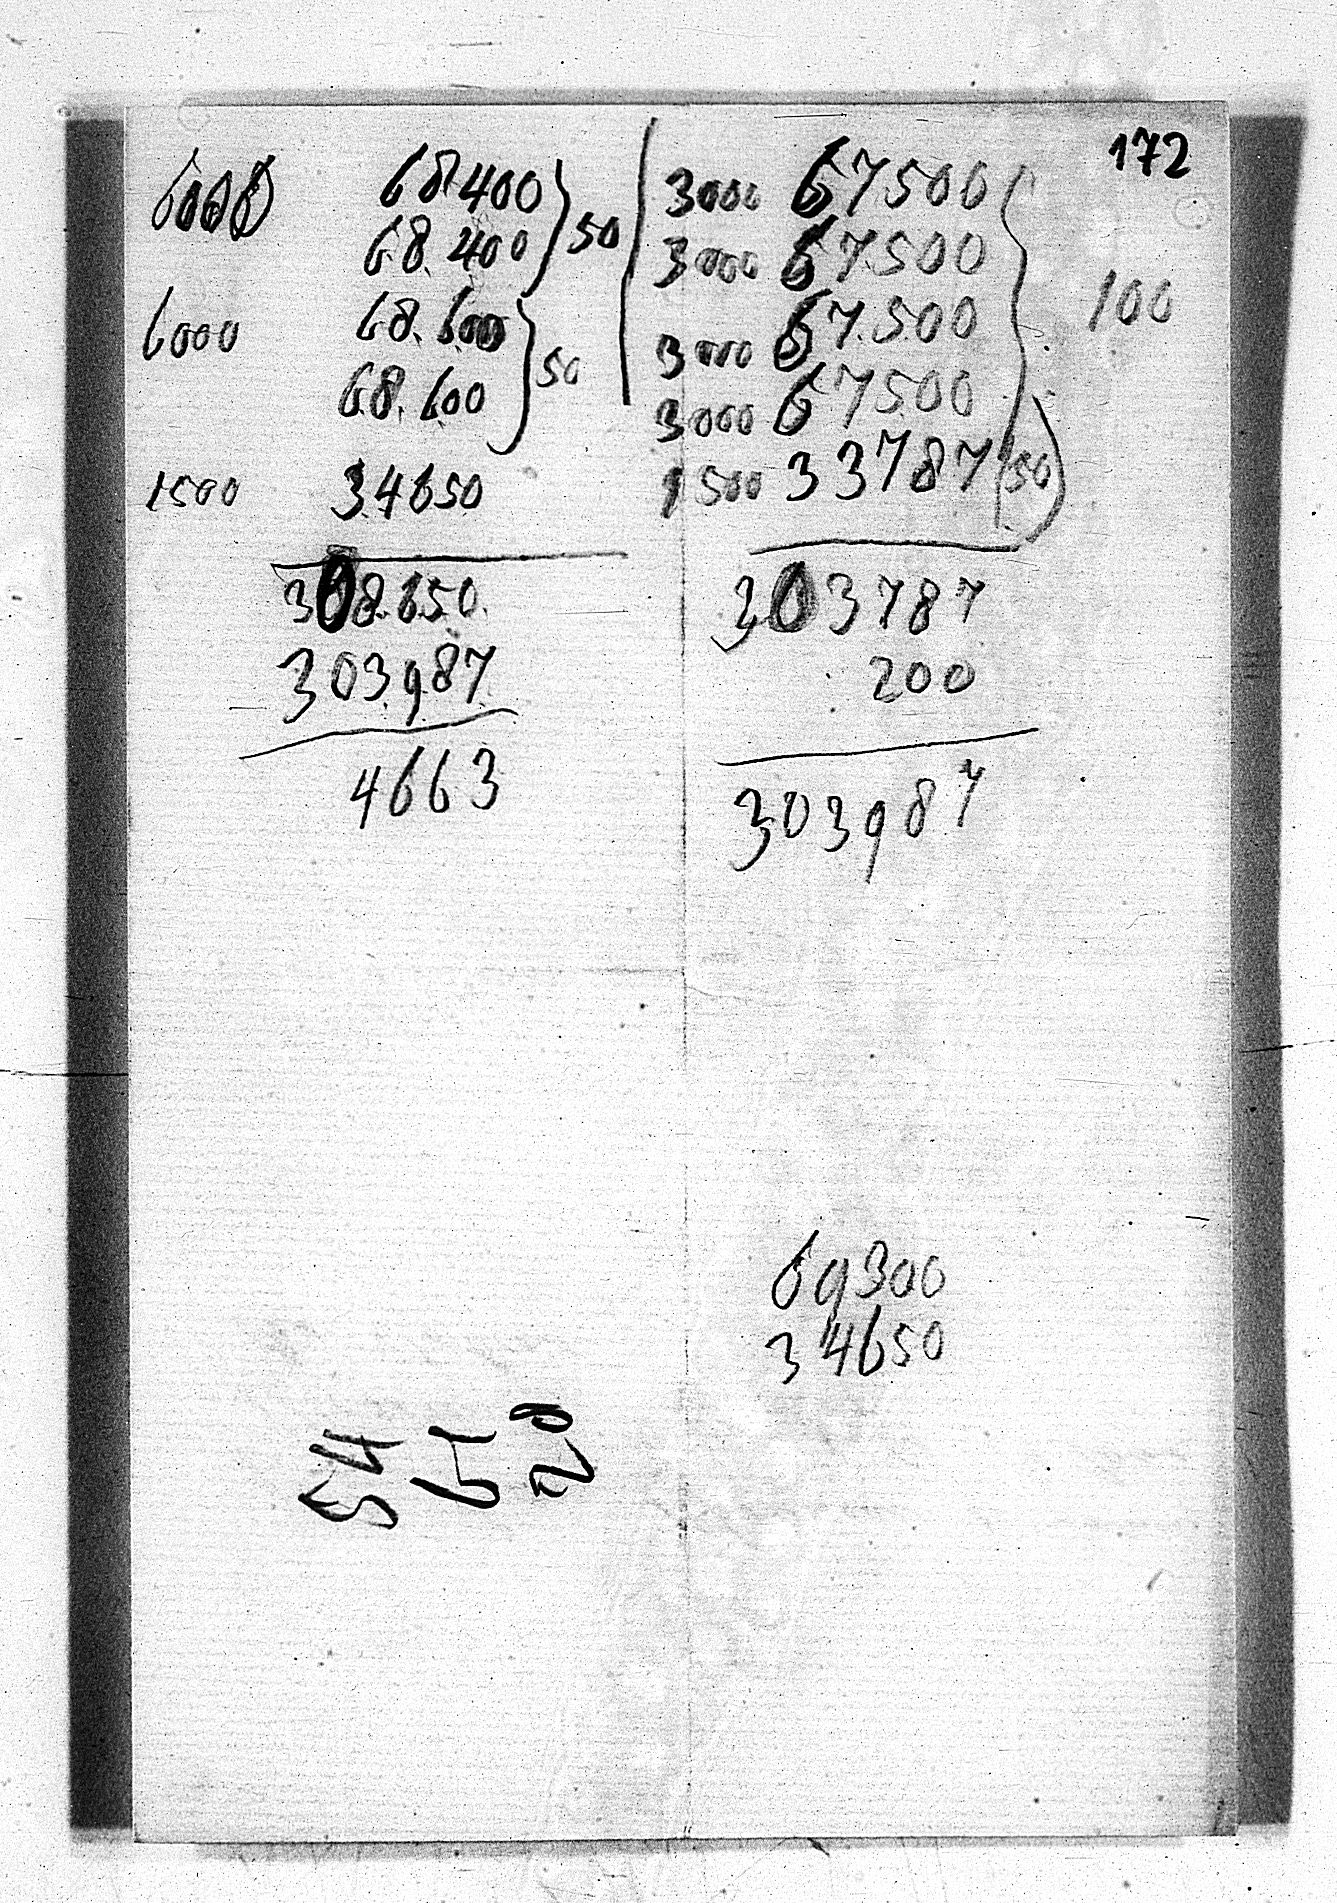 172
6000 68400 } 50
68.400
6000 68.600 } 50
68.600
1500 34650
308.650
303987
4663
3000 67500
3000 67500
3000 67.500 100
3000 67500
1500 33787 50
303787
200
303987
69300
34650
54
65
20